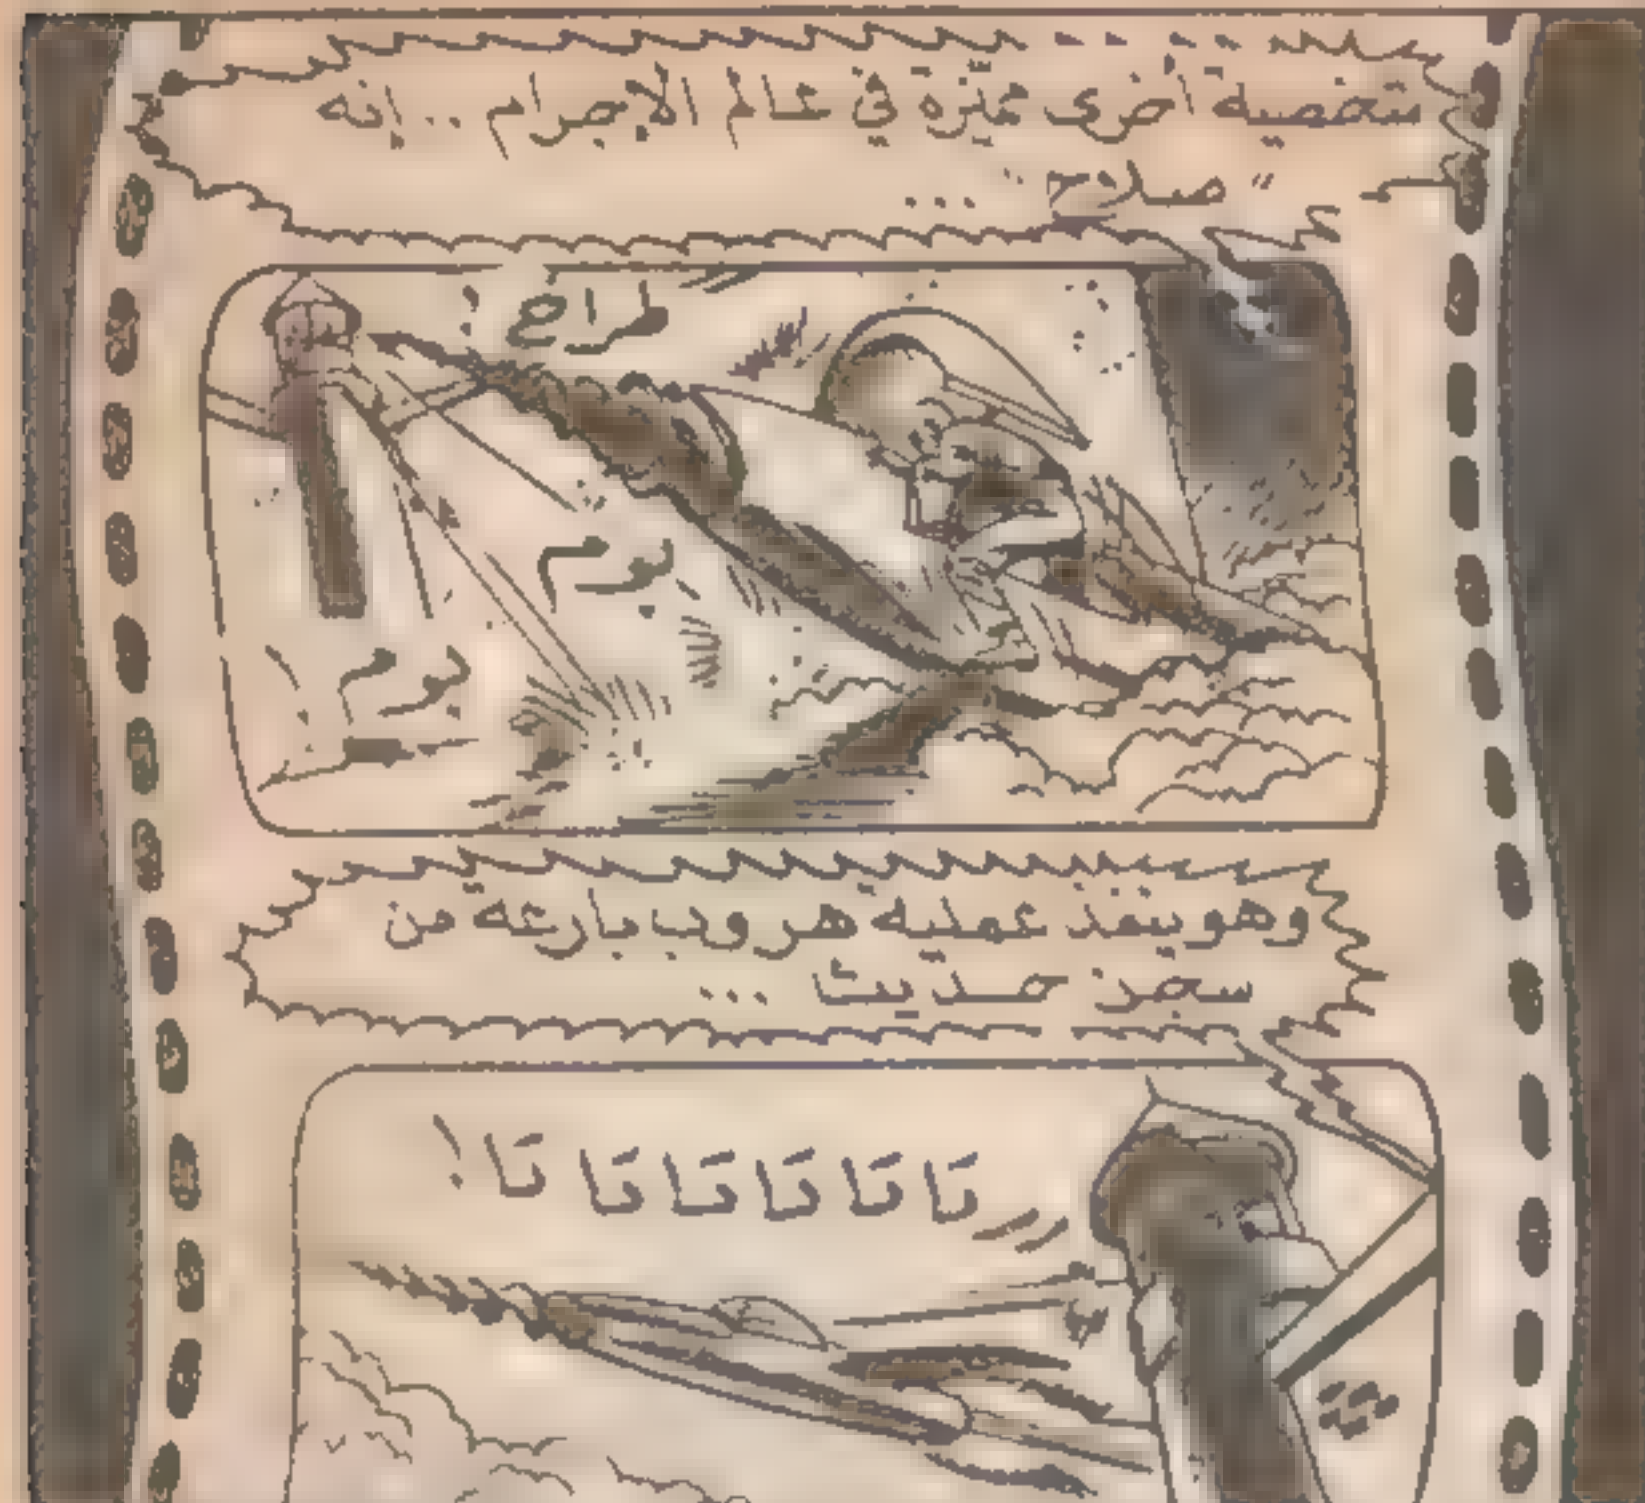 شخصية أخرى مميّزة في عالم الإجرام .. إنه
" صلاح " ...
طراخ !
بوم
بوم !
وهو ينفذ عملية هروب بارعة من
سجن حديث ...
تا تا تا تا تا تا !